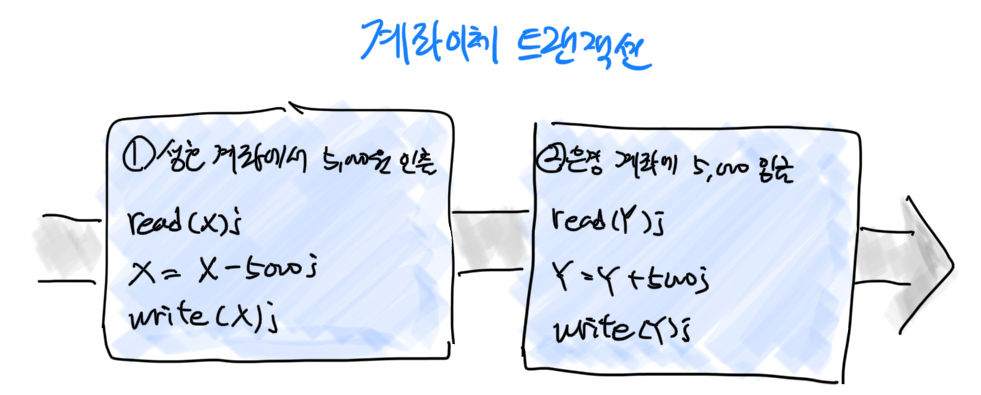 계좌이체 트랜잭션
① 성호 계좌에서 5,000원 인출
read(X);
X = X - 5000;
write(X);
② 은경 계좌에 5,000 입금
read(Y);
Y = Y + 5000;
write(Y);